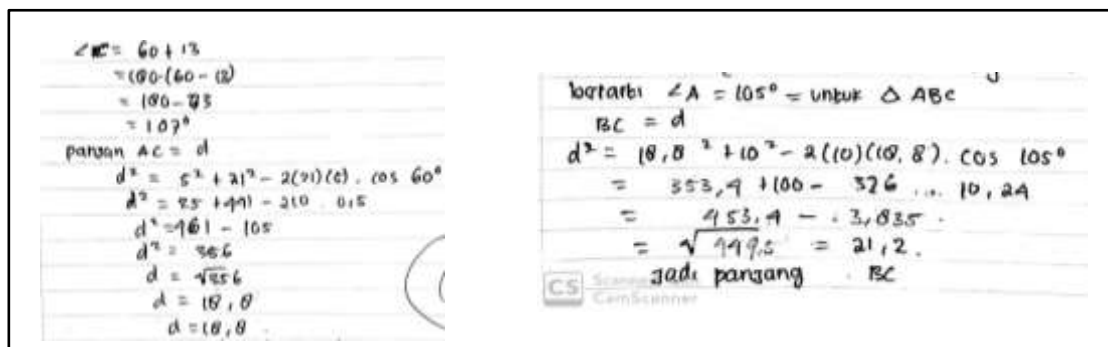 ∠C = 60 + 13
= 180-(60 - 13)
= 180 - 73
= 107°
panjan AC = d
d² = 5² + 21² - 2(21)(5) . cos 60°
d² = 25 + 441 - 210 . 0,5
d² = 461 - 105
d² = 356
d = √356
d = 18,8
d = 18,8
berarti ∠A = 105° = untuk △ ABC
BC = d
d² = 18,8² + 10² - 2(10)(18,8). cos 105°
= 353,4 + 100 - 376 ... 10,24
= 453,4 - . 3,835 .
= √449,5 = 21,2.
Jadi panjang . BC
CS CamScanner